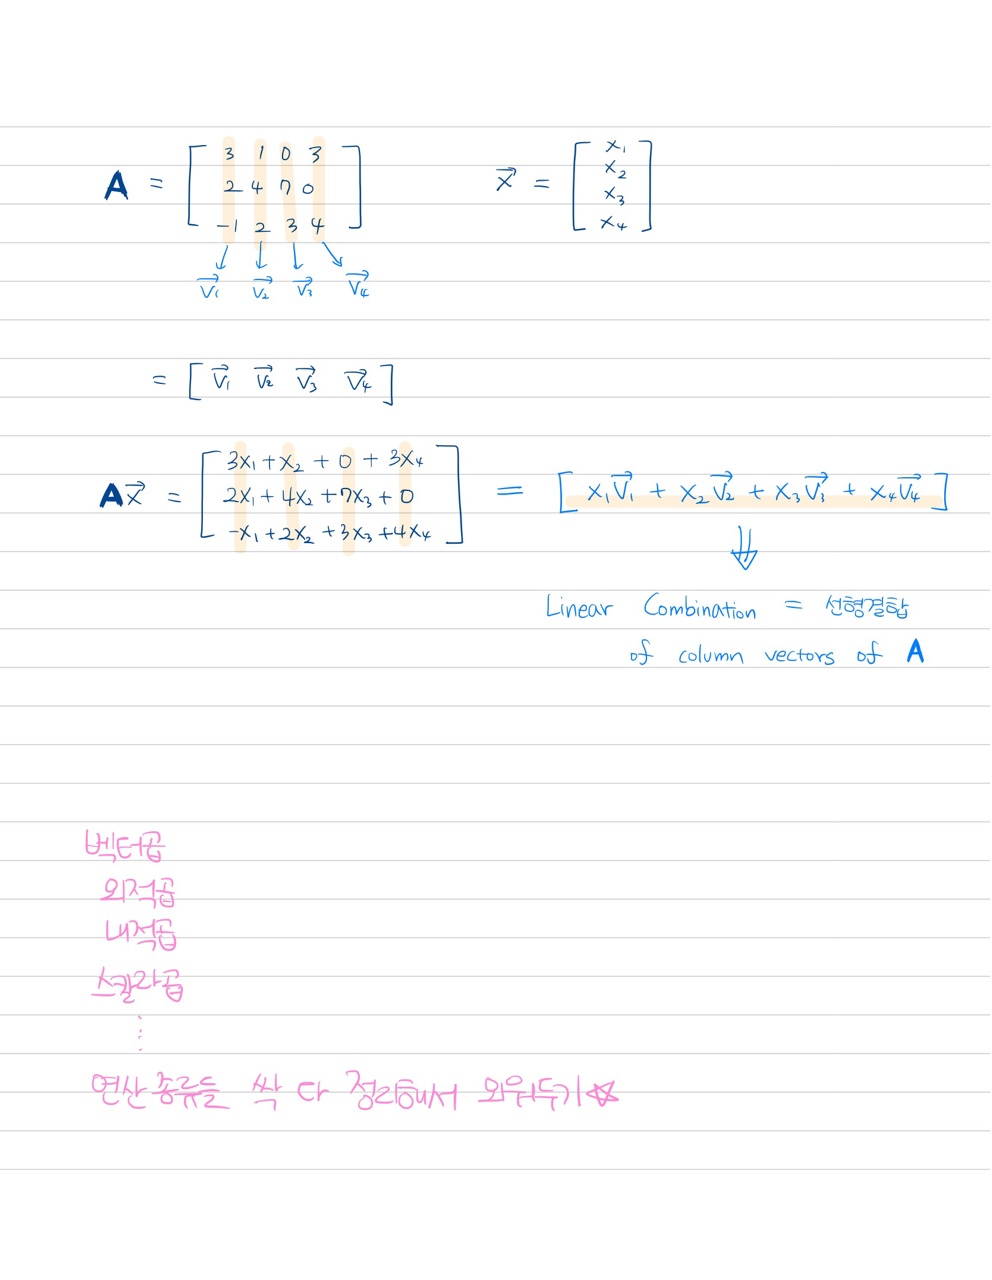 A = [ 3 1 0 3   x⃗ = [ x₁
2 4 7 0   x₂
-1 2 3 4 ]   x₃
x₄ ]
v⃗₁ v⃗₂ v⃗₃ v⃗₄
= [ v⃗₁ v⃗₂ v⃗₃ v⃗₄ ]
[ 3x₁ + x₂ + 0 + 3x₄
Ax⃗ = 2x₁ + 4x₂ + 7x₃ + 0 = [ x₁v⃗₁ + x₂v⃗₂ + x₃v⃗₃ + x₄v⃗₄ ]
-x₁ + 2x₂ + 3x₃ + 4x₄ ]
⇓
Linear Combination = 선형결합
of column vectors of A
벡터곱
외적곱
내적곱
스칼라곱
⋮
연산 종류들 싹 다 정리해서 외워두기☆